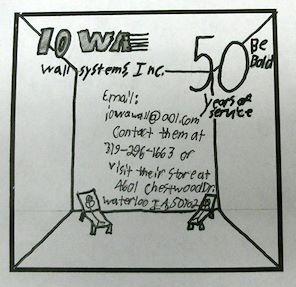 IOWA
Wall systems, Inc.
50
Be
Bold
years of
service
Email:
iowawall@aol.com
Contact them at
319-296-1663 or
visit their store at
4601 Chestwood Dr.
Waterloo IA, 50702